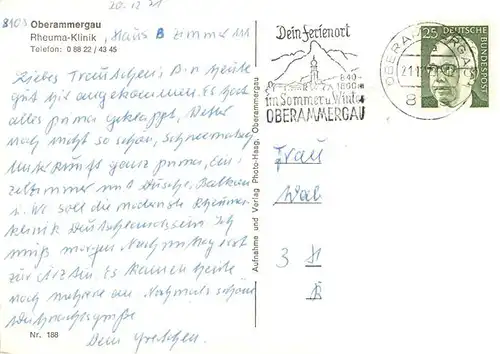 20.12.71
8103 Oberammergau
Rheuma-Klinik, Haus B Zimmer 111
Telefon: 0 88 22 / 43 45
Liebes Trautchen! Bin heute
gut hier angekommen. Es hat
alles prima geklappt, Wetter
noch nicht so schön, Schneematsch
Unterkunft ganz prima, Ein-
zelzimmer mit Dusche, Balkon
u. Wc soll die modernste Rheuma-
klinik Deutschlands sein. Ich
muß morgen Nachmittag erst
zur Ärztin. Es kamen heute
noch mehrere an. Nochmals schöne
Weihnachtsgrüße
Dein Gretchen.
Nr. 188
Aufnahme und Verlag Photo-Haag, Oberammergau
Dein Ferienort
840-
1600 m
im Sommer u. Winter
OBERAMMERGAU
OBERAMMERGAU
a
21.12.71
8
25
DEUTSCHE
BUNDESPOST
Frau
Wal
3